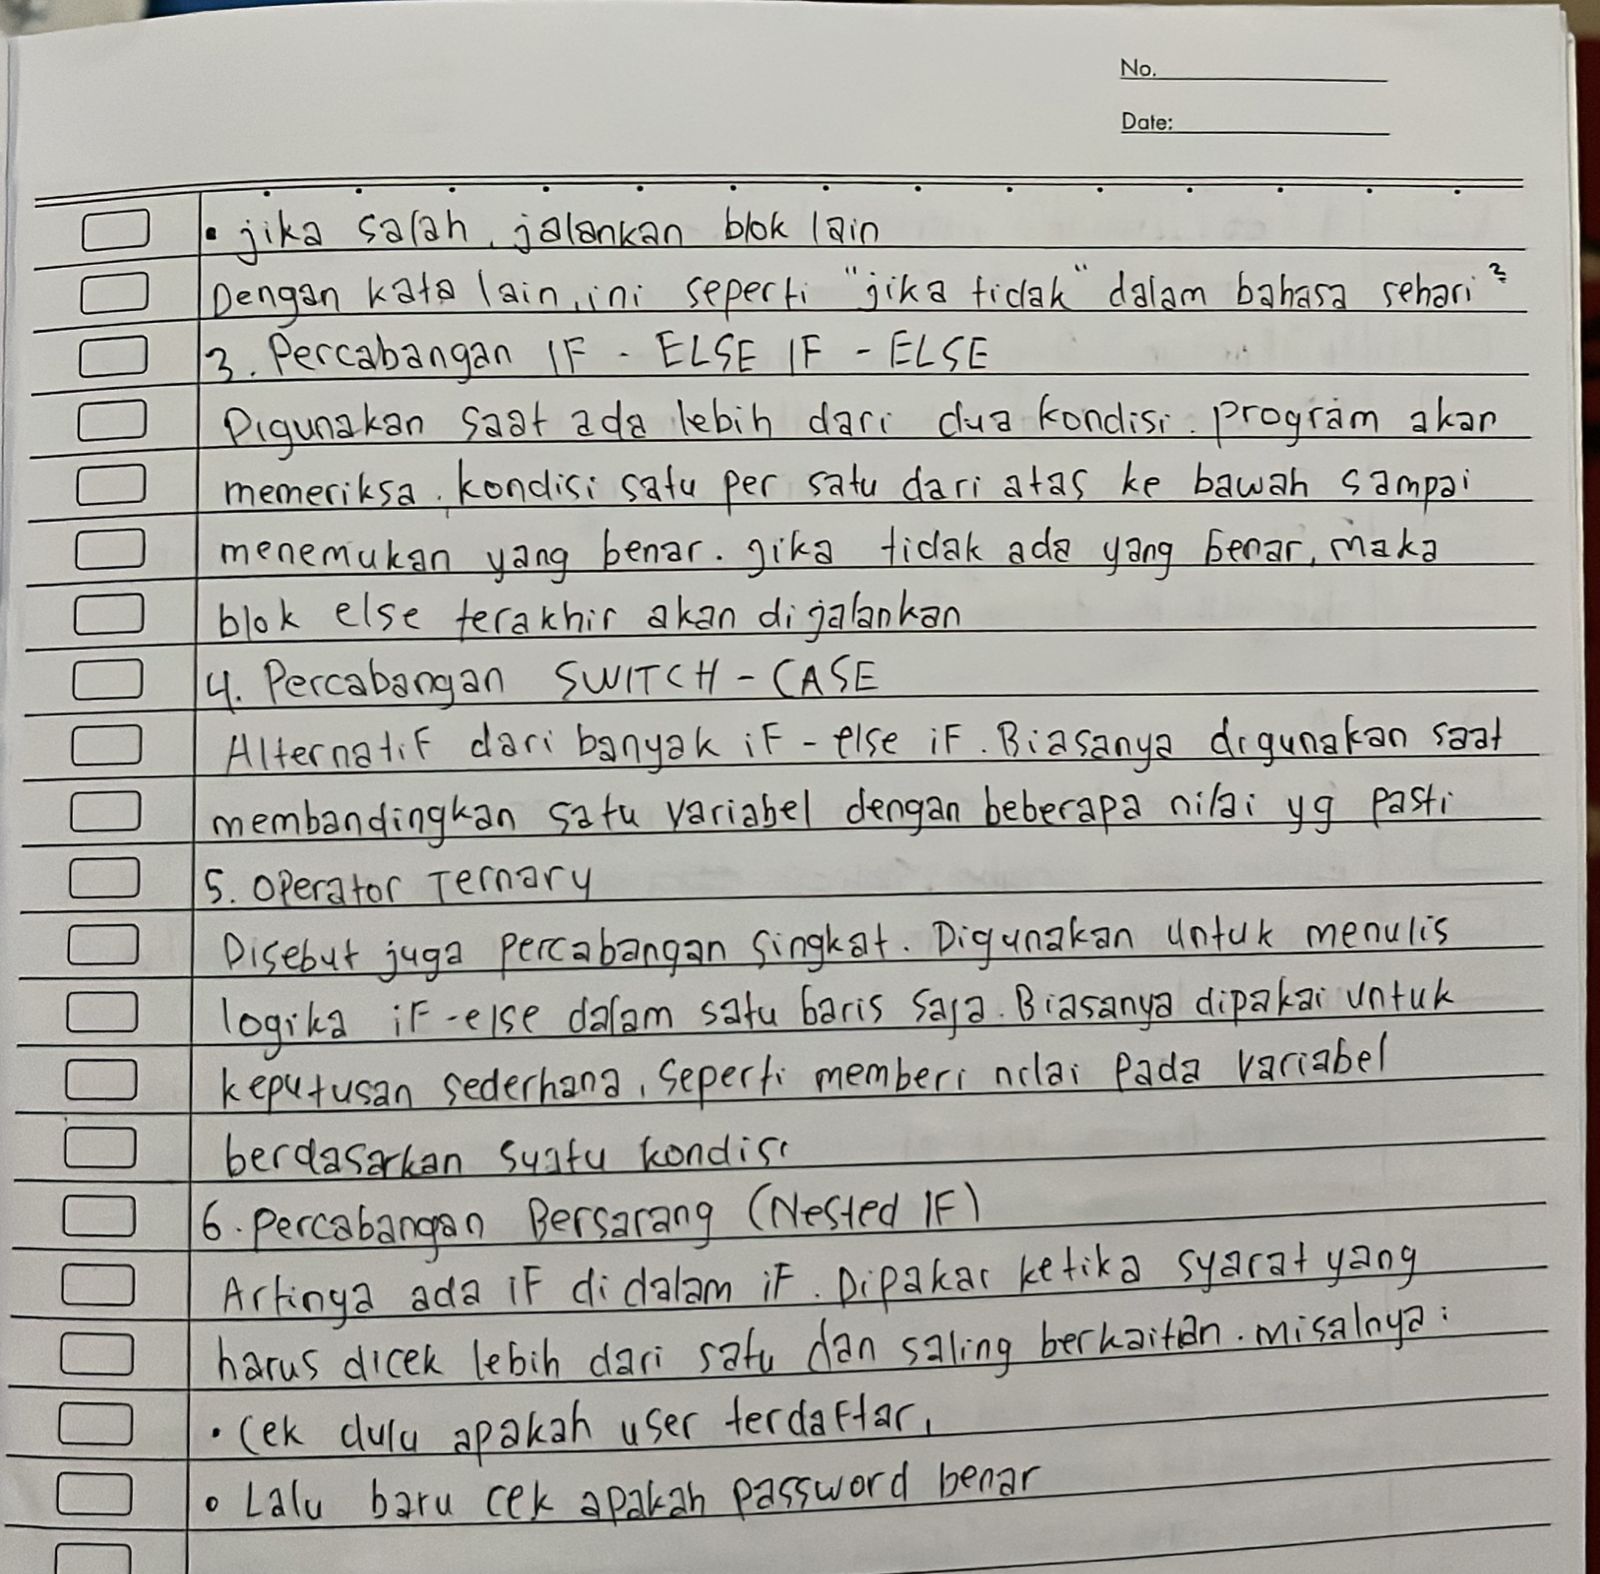 No.
Date:
• jika salah, jalankan blok lain
Dengan kata lain, ini seperti "jika tidak" dalam bahasa sehari²
3. Percabangan IF - ELSE IF - ELSE
Digunakan saat ada lebih dari dua kondisi. program akan
memeriksa, kondisi satu per satu dari atas ke bawah sampai
menemukan yang benar. jika tidak ada yang benar, maka
blok else terakhir akan dijalankan
4. Percabangan SWITCH - CASE
Alternatif dari banyak if - else if. Biasanya digunakan saat
membandingkan satu variabel dengan beberapa nilai yg pasti
5. Operator Ternary
Disebut juga percabangan singkat. Digunakan untuk menulis
logika if-else dalam satu baris saja. Biasanya dipakai untuk
keputusan sederhana, seperti memberi nilai pada variabel
berdasarkan suatu kondisi
6. Percabangan Bersarang (Nested IF)
Artinya ada if di dalam if. Dipakai ketika syarat yang
harus dicek lebih dari satu dan saling berkaitan. misalnya:
• Cek dulu apakah user terdaftar,
• Lalu baru cek apakah password benar